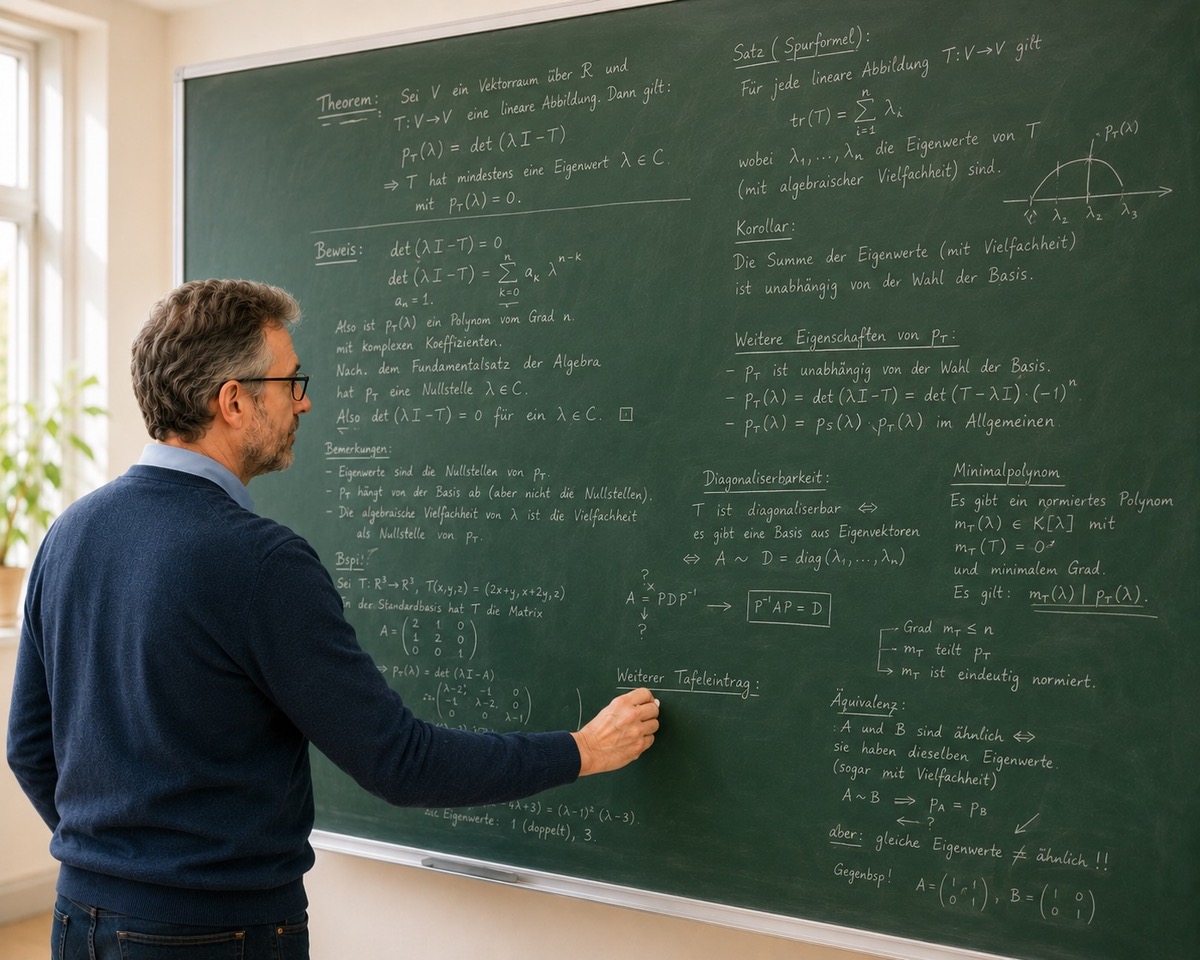 Theorem: Sei V ein Vektorraum über R und
T: V→V eine lineare Abbildung. Dann gilt:
p_T(λ) = det (λI−T)
⇒ T hat mindestens eine Eigenwert λ ∈ C.
mit p_T(λ) = 0.
Beweis: det (λI−T) = 0
det (λI−T) = ∑_{k=0}^{n} a_k λ^{n−k}
a_n = 1.
Also ist p_T(λ) ein Polynom vom Grad n.
mit komplexen Koeffizienten.
Nach. dem Fundamentalsatz der Algebra
hat p_T eine Nullstelle λ ∈ C.
Also det (λI−T) = 0 für ein λ ∈ C. ⊡
Bemerkungen:
- Eigenwerte sind die Nullstellen von p_T.
- p_T hängt von der Basis ab (aber nicht die Nullstellen).
- Die algebraische Vielfachheit von λ ist die Vielfachheit
als Nullstelle von p_T.
Bspl!
Sei T: R³→R³, T(x,y,z) = (2x+y, x+2y, z)
in der Standardbasis hat T die Matrix
A = (2 1 0
1 2 0
0 0 1)
⇒ p_T(λ) = det (λI−A)
(λ−2 −1 0
−1 λ−2 0
0 0 λ−1)
4λ+3) = (λ−1)² (λ−3).
Eigenwerte: 1 (doppelt), 3.
Satz (Spurformel):
Für jede lineare Abbildung T: V→V gilt
tr(T) = ∑_{i=1}^{n} λ_i
wobei λ₁, ..., λ_n die Eigenwerte von T
(mit algebraischer Vielfachheit) sind.
p_T(λ)
λ₂ λ₂ λ₃
Korollar:
Die Summe der Eigenwerte (mit Vielfachheit)
ist unabhängig von der Wahl der Basis.
Weitere Eigenschaften von p_T:
- p_T ist unabhängig von der Wahl der Basis.
- p_T(λ) = det (λI−T) = det (T−λI)·(−1)^n
- p_T(λ) = p_S(λ)·p_T(λ) im Allgemeinen
Diagonaliserbarkeit:
T ist diagonaliserbar ⇔
es gibt eine Basis aus Eigenvektoren
⇔ A ~ D = diag (λ₁, ..., λ_n)
?
x
A = PDP⁻¹ → P⁻¹AP = D
↓
?
Minimalpolynom
Es gibt ein normiertes Polynom
m_T(λ) ∈ K[λ] mit
m_T(T) = 0
und minimalem Grad.
Es gilt: m_T(λ) | p_T(λ).
Grad m_T ≤ n
m_T teilt p_T
m_T ist eindeutig normiert.
Weiterer Tafeleintrag:
Äquivalenz:
A und B sind ähnlich ⇔
sie haben dieselben Eigenwerte.
(sogar mit Vielfachheit)
A ~ B ⇒ p_A = p_B
← ?
aber: gleiche Eigenwerte ≠ ähnlich !!
Gegenbsp! A = (1 1
0 1), B = (1 0
0 1)